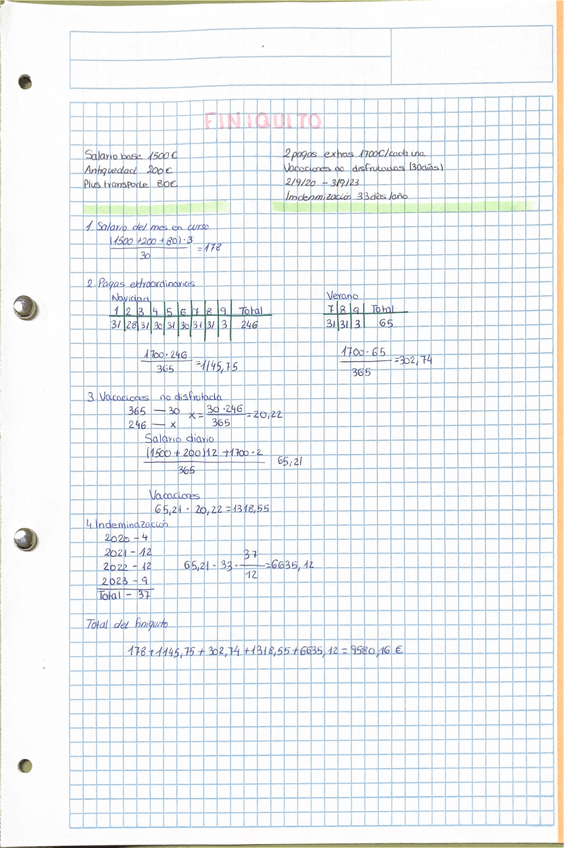 FINIQUITO
Salario base 1500€
Antiguedad 200€
Plus transporte 80€
2 pagas extras 1700€/cada una
Vacaciones no disfrutadas (30días)
2/9/20 - 3/9/23
Imdenmización 33días/año
1. Salario del mes en curso
(1500 +200 +80) · 3
30
=178
2. Pagas extraordinarias
Navidad
1 2 3 4 5 6 7 8 9 Total
31 28 31 30 31 30 31 31 3 246
1700 · 246
365
=1145,75
Verano
7 8 9 Total
31 31 3 65
1700 · 65
365
=302,74
3. Vacaciones no disfrutada
365 — 30
246 — x
x = 30 · 246
365
=20,22
Salario diario
(1500 + 200)12 +1700 · 2
365
65,21
Vacaciones
65,21 · 20,22 =1318,55
4. Indeminazación
2020 - 4
2021 - 12
2022 - 12
2023 - 9
Total - 37
65,21 · 33 · 37
12
=6635,12
Total del finiquito
178 + 1145,75 + 302,74 +1318,55 + 6635,12 = 9580,16 €